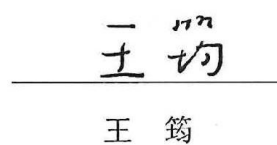 王筠
王 筠